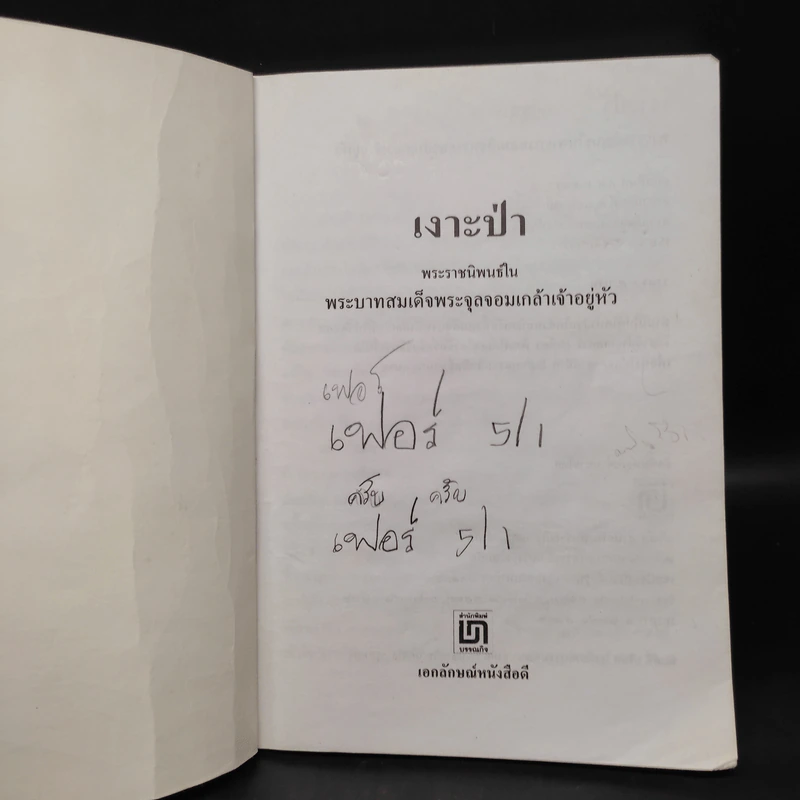 เงาะป่า
พระราชนิพนธ์ใน
พระบาทสมเด็จพระจุลจอมเกล้าเจ้าอยู่หัว
เฟอร์
เฟอร์ 5/1
ครับ ครับ
เฟอร์ 5/1
สำนักพิมพ์
บรรณกิจ
เอกลักษณ์หนังสือดี